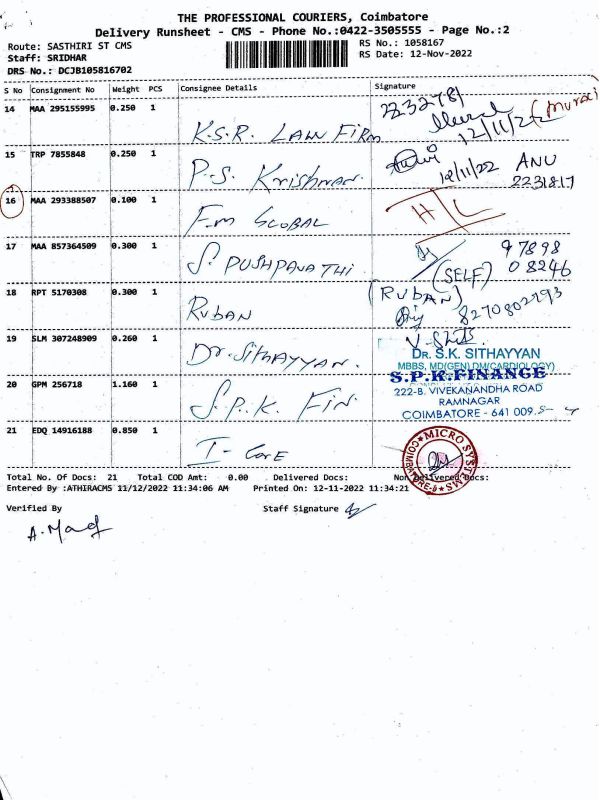 THE PROFESSIONAL COURIERS, Coimbatore
Delivery Runsheet - CMS - Phone No.:0422-3505555 - Page No.:2
Route: SASTHIRI ST CMS
RS No.: 1058167
Staff: SRIDHAR
RS Date: 12-Nov-2022
DRS No.: DCJB105816702
S No Consignment No Weight PCS Consignee Details Signature
14 MAA 295155995 0.250 1
K.S.R. LAW FIRM
2232781
12/11/22 (Murali)
15 TRP 7855848 0.250 1
P.S. Krishnan.
12/11/22 ANU
2231817
16 MAA 293388507 0.100 1
Fm GLOBAL
H/L
17 MAA 857364509 0.300 1
S. PUSHPAVATHI.
(SELF)
97898
08246
18 RPT 5170308 0.300 1
RUBAN
(RUBAN)
8270802793
19 SLM 307248909 0.260 1
Dr. SITHAYYAN.
DR. S.K. SITHAYYAN
MBBS, MD(GEN) DM(CARDIOLOGY)
20 GPM 256718 1.160 1
S.P.K. FIN.
S.P.K.FINANCE
222-B. VIVEKANANDHA ROAD
RAMNAGAR
COIMBATORE - 641 009.
21 EDQ 14916188 0.850 1
I-Care
MICRO SYSTEMS
COIMBATORE
Total No. Of Docs: 21 Total COD Amt: 0.00 Delivered Docs: Non Delivered Docs:
Entered By :ATHIRACMS 11/12/2022 11:34:06 AM Printed On: 12-11-2022 11:34:21
Verified By
Staff Signature